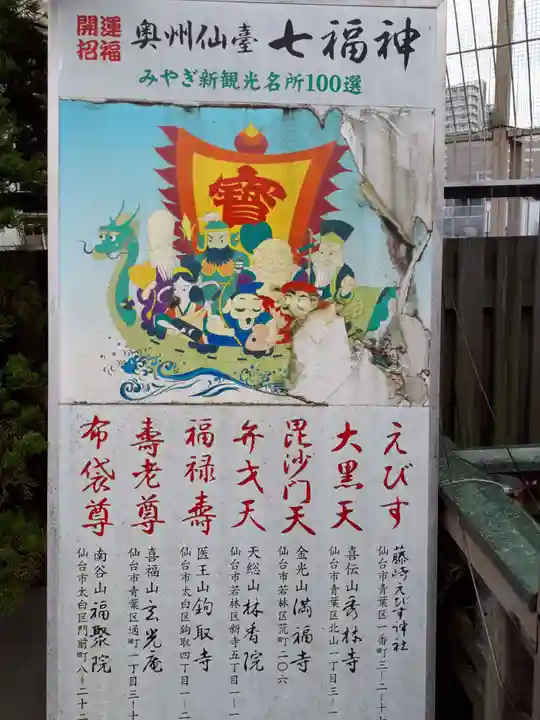 開運
招福
奥州仙臺 七福神
みやぎ新観光名所100選
寶
えびす
藤崎えびす神社
仙台市青葉区一番町三-二-
大黒天
喜伝山 秀林寺
仙台市青葉区北山一丁目三-一
毘沙門天
金光山 満福寺
仙台市若林区荒町二〇六
弁才天
天総山 林香院
仙台市若林区新寺五丁目一-一
福禄寿
医王山 鉤取寺
仙台市太白区鉤取四丁目一-二
壽老尊
喜福山 玄光庵
仙台市青葉区通町一丁目三-十
布袋尊
南谷山 福聚院
仙台市太白区門前町八-二十二